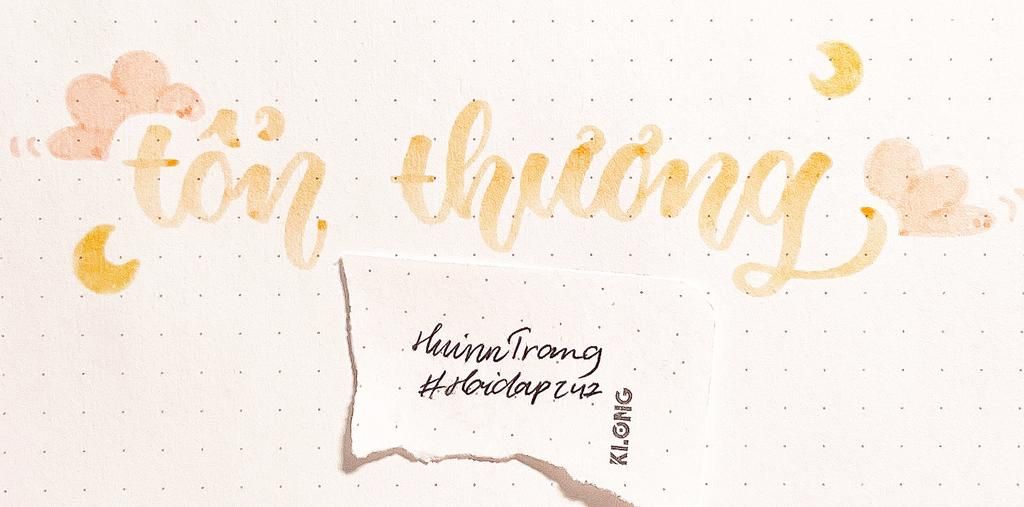 tổn thương
HuinnTrang
#Hoidap247
KLONG